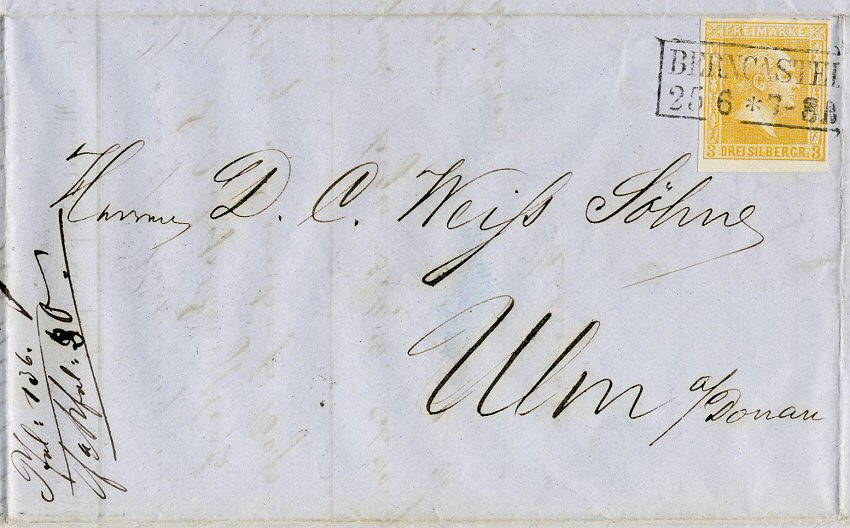 FREIMARKE
BERNCASTEL
25 6 * 7-8
3 DREI SILBERGR: 3
Herren D. C. Weiß Söhne
Ulm a/Donau
136.